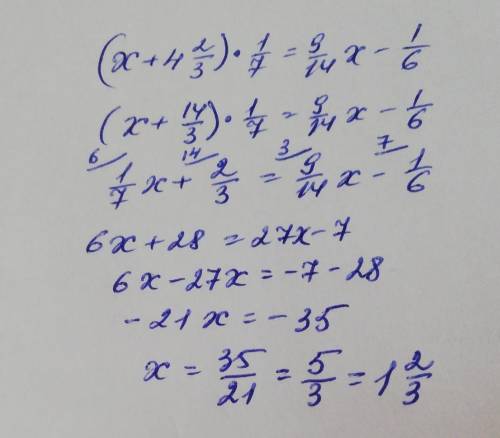 (x + 4 2/3) · 1/7 = 9/14 x - 1/6
(x + 14/3) · 1/7 = 9/14 x - 1/6
6 14 3 7
1/7 x + 2/3 = 9/14 x - 1/6
6x + 28 = 27x - 7
6x - 27x = -7 - 28
-21x = -35
x = 35/21 = 5/3 = 1 2/3